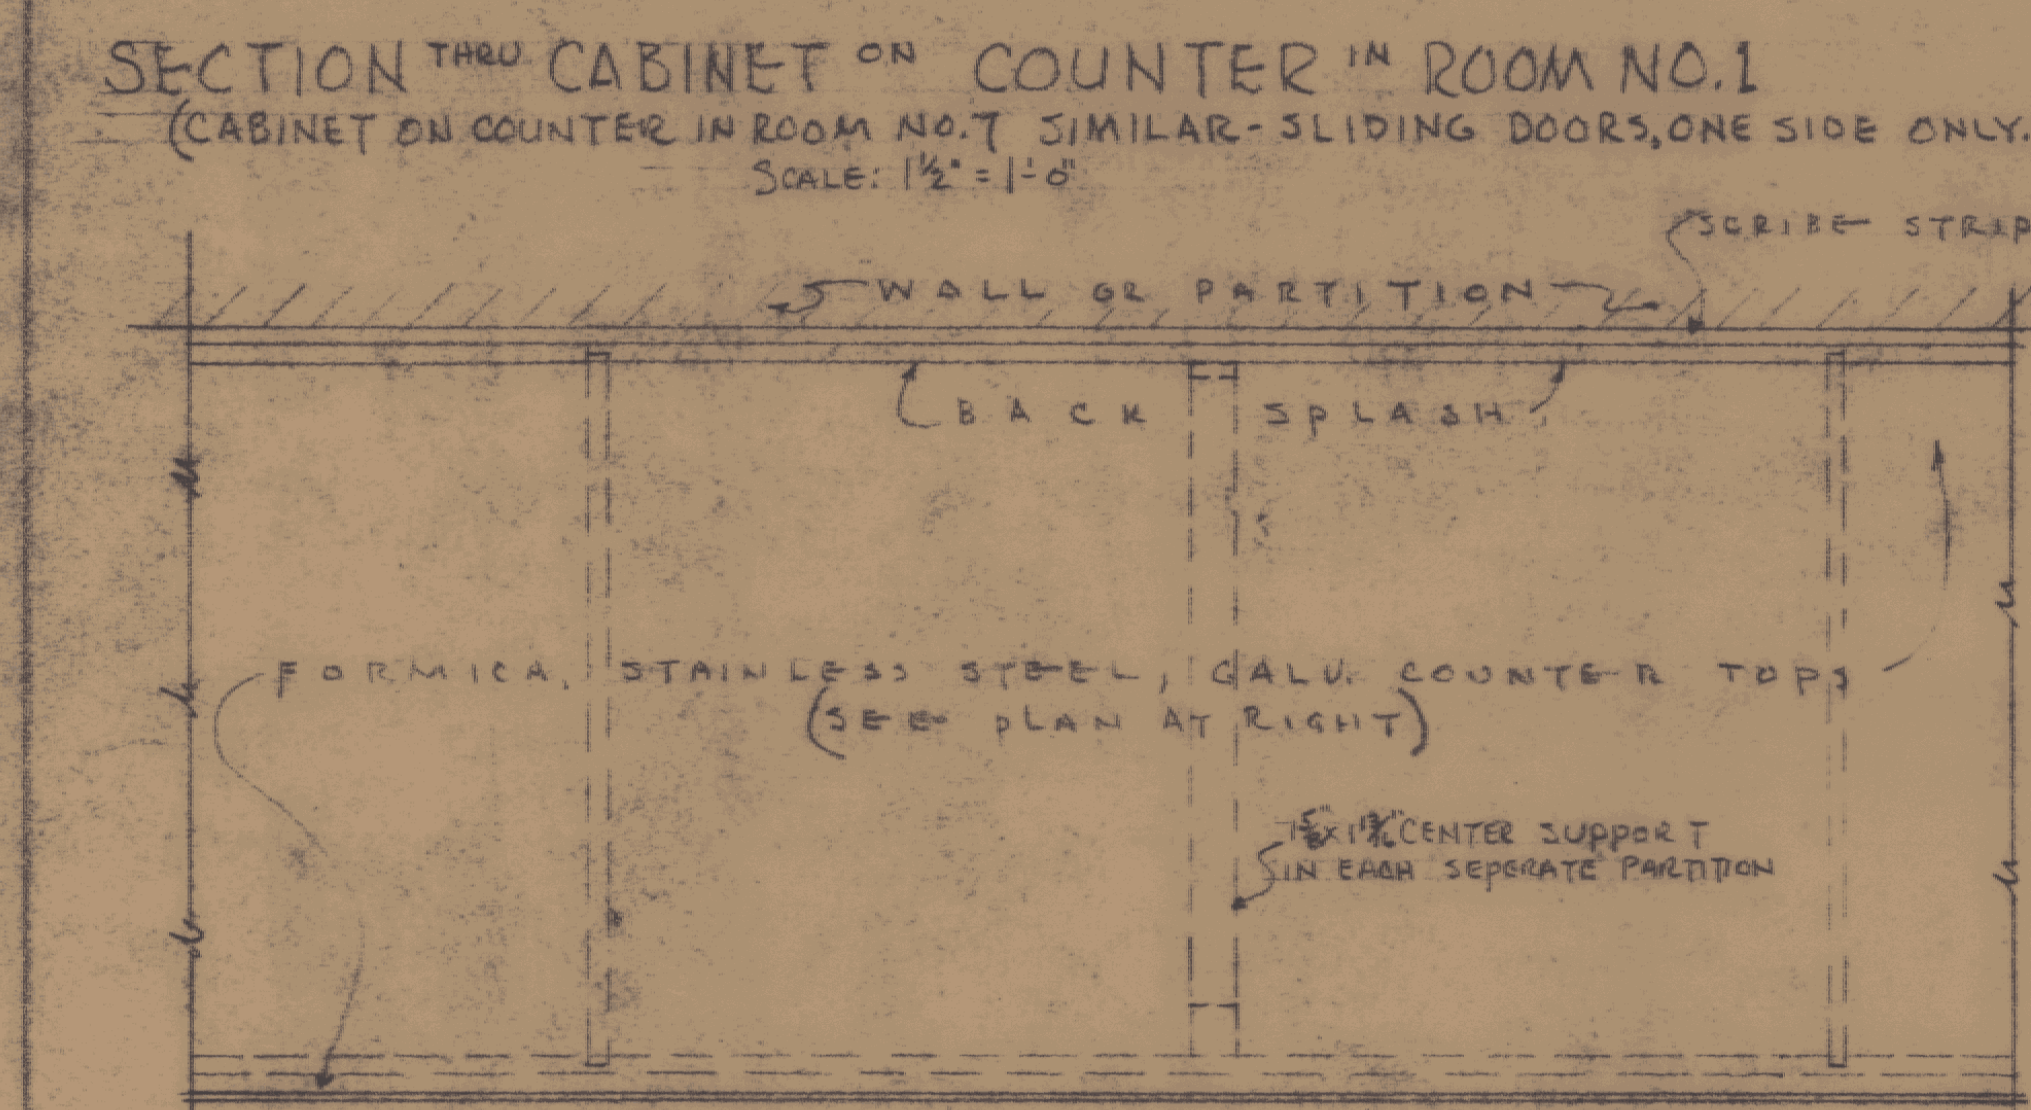 SECTION THRU CABINET ON COUNTER IN ROOM NO.1
(CABINET ON COUNTER IN ROOM NO.7 SIMILAR-SLIDING DOORS, ONE SIDE ONLY.
SCALE: 1½" = 1'-0"
SCRIBE STRIP
WALL OR PARTITION
BACK SPLASH
FORMICA, STAINLESS STEEL, GALV. COUNTER TOPS
(SEE PLAN AT RIGHT)
CENTER SUPPORT
IN EACH SEPERATE PARTITION